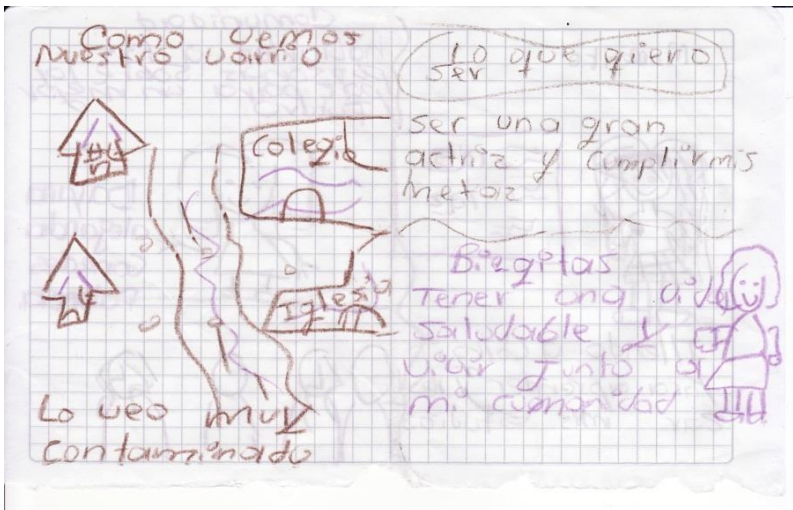 Como vemos
Nuestro varrio
Colegio
Iglesia
Lo veo muy
contaminado
Lo que qiero
ser
ser una gran
actriz y cumplirmis
metaz
Bizqitas
Tener una vida
saludable y
vivir junto a
mi cumonidad